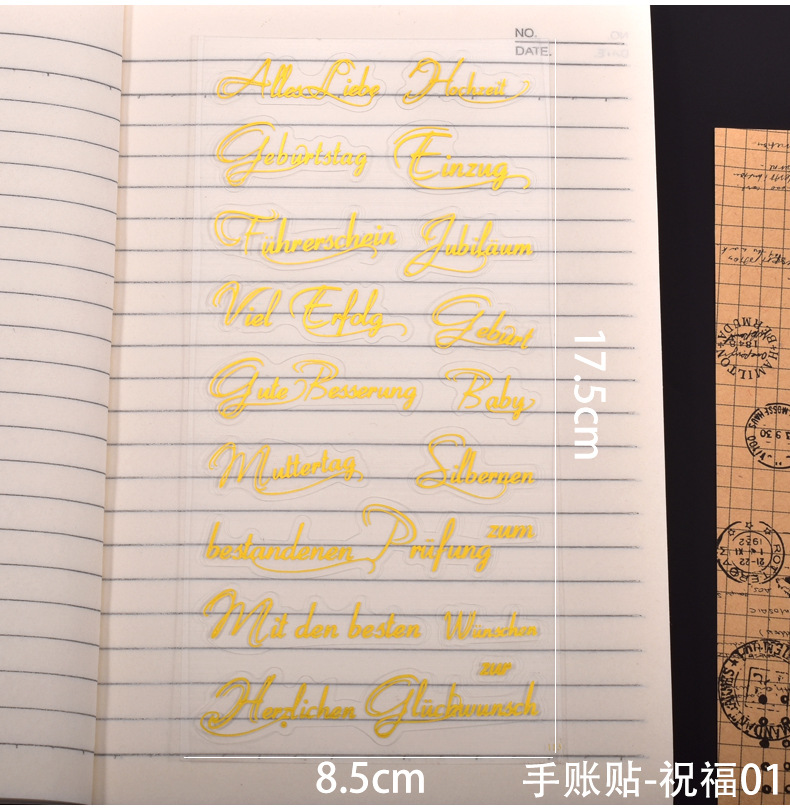 NO.
DATE.
Alles Liebe Hochzeit
Geburtstag Einzug
Führerschein Jubiläum
Viel Erfolg Geburt
Gute Besserung Baby
Muttertag Silbernen
zum
bestandenen Prüfung
Mit den besten Wünschen
zur
Herzlichen Glückwunsch
17.5cm
8.5cm
手账贴-祝福01
HAMILTON
BERMUDA